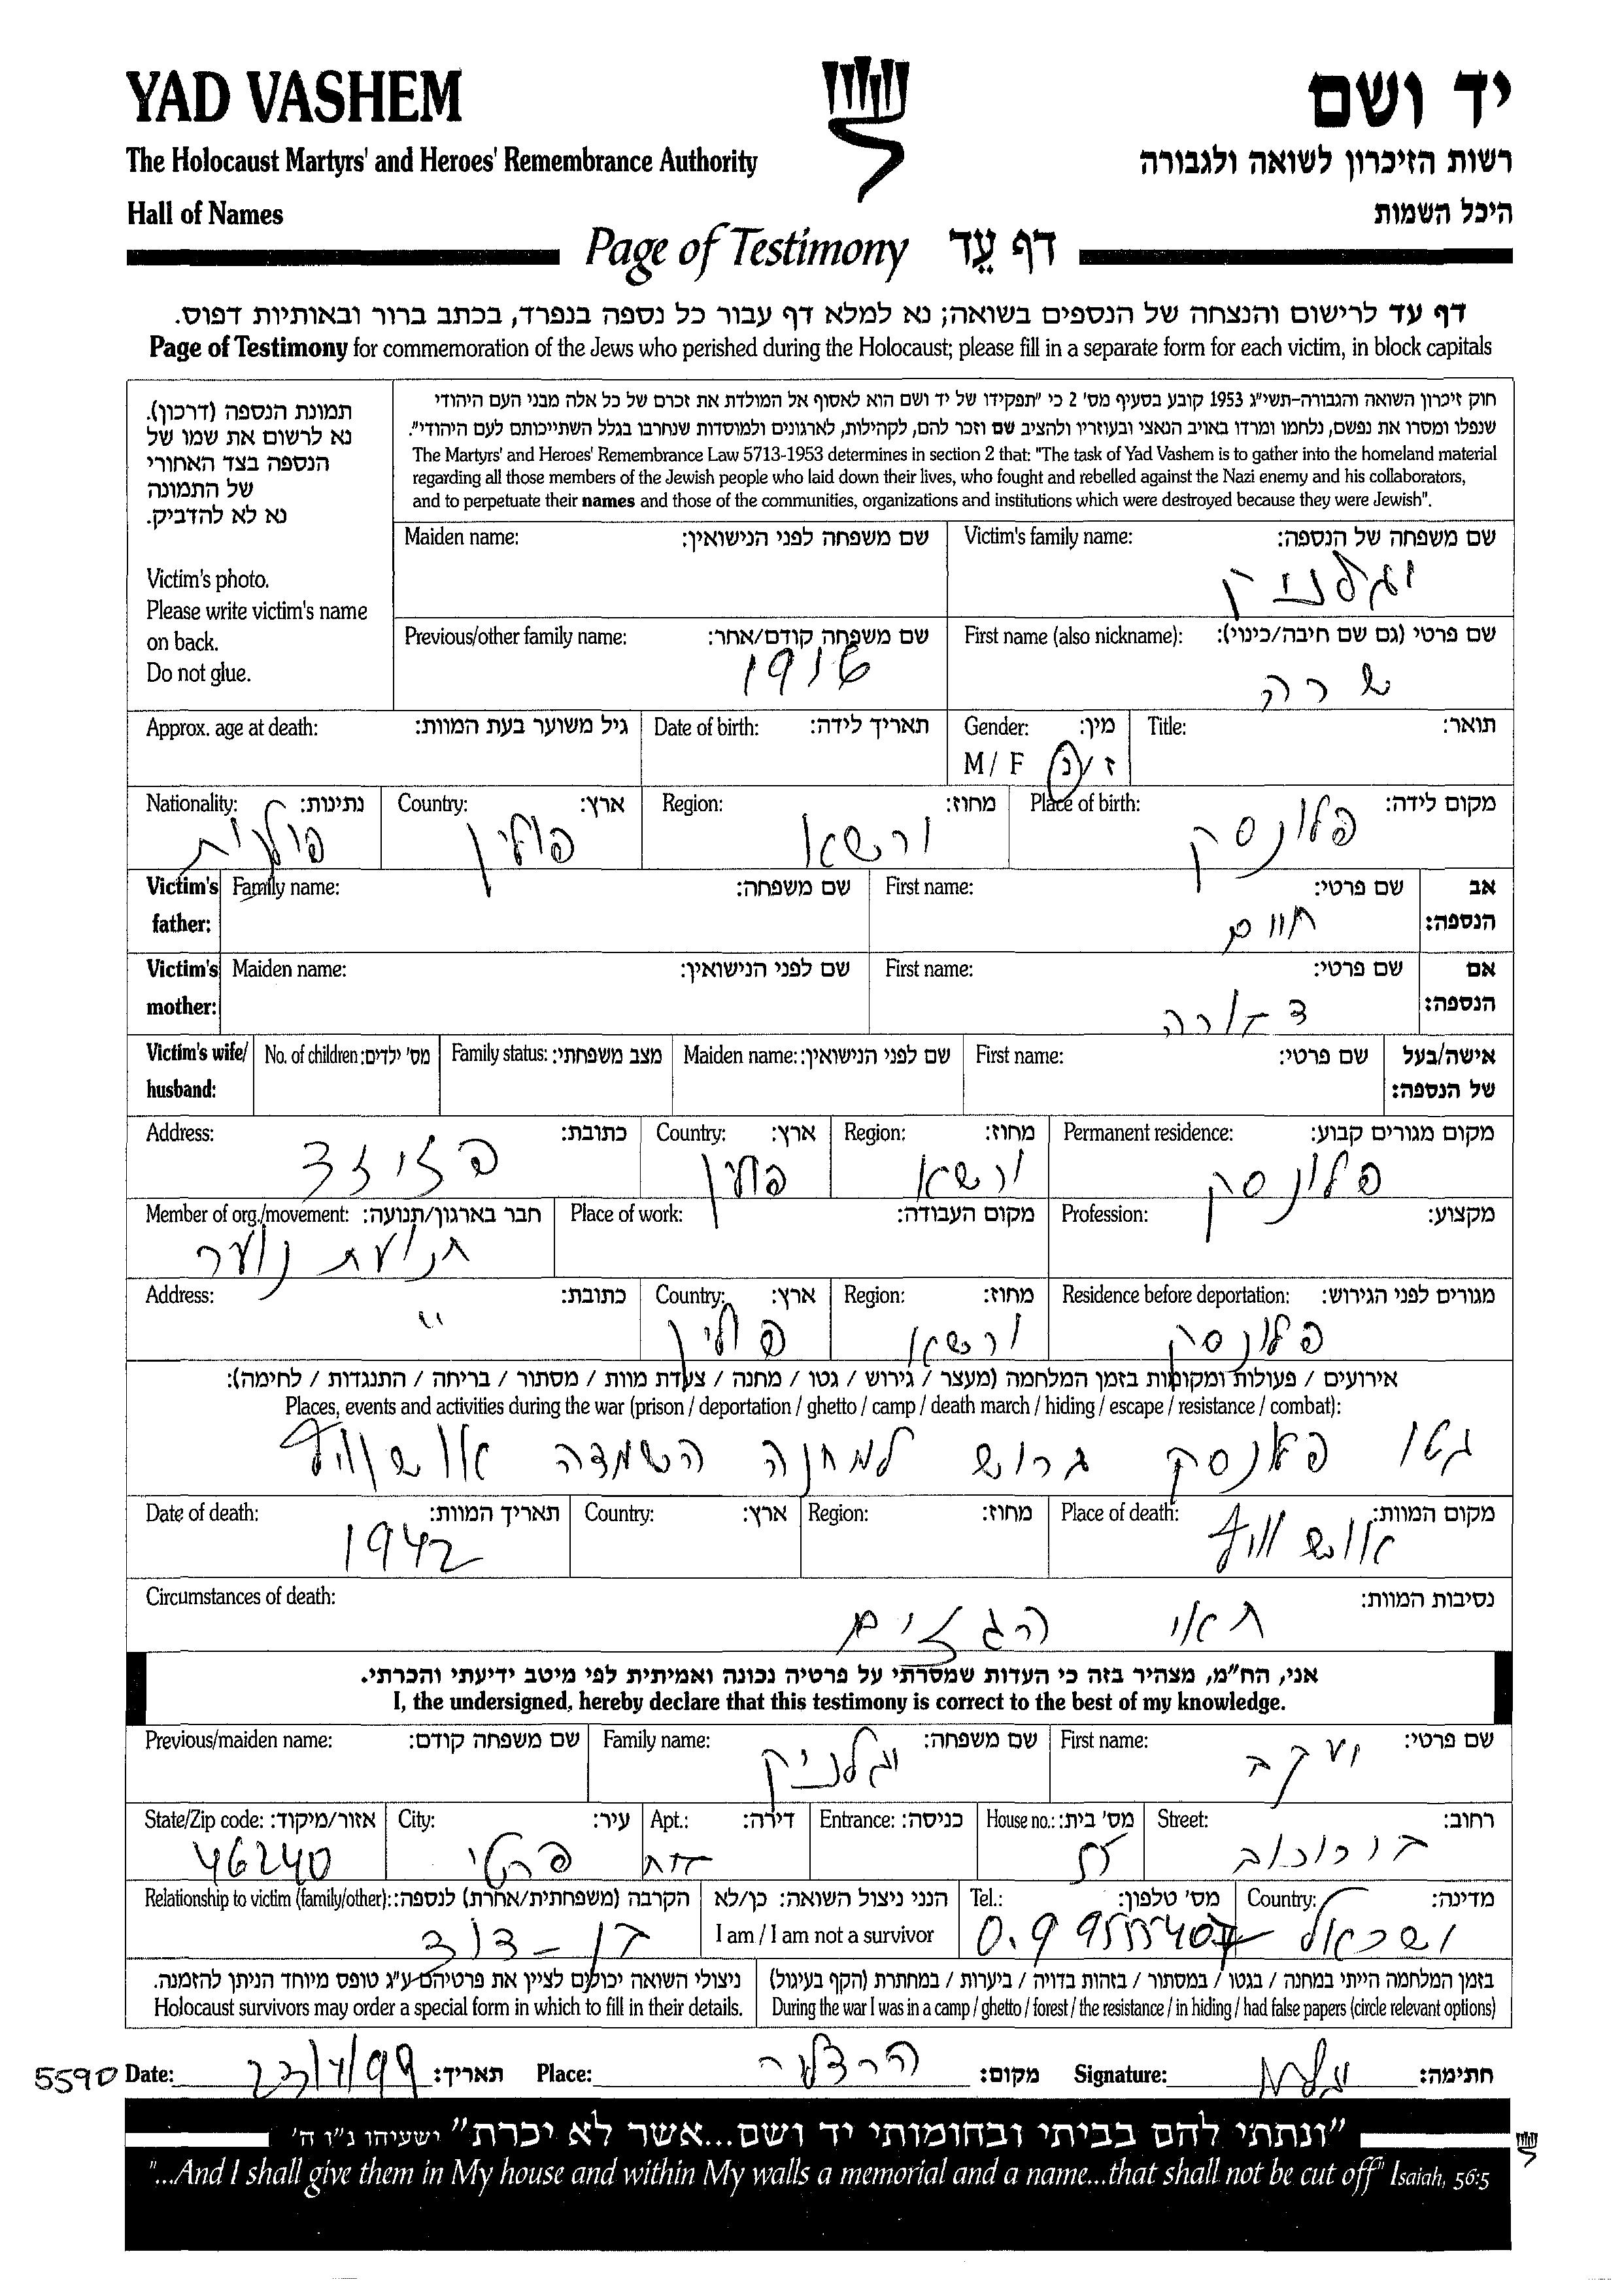 YAD VASHEM
יד ושם
The Holocaust Martyrs' and Heroes' Remembrance Authority
רשות הזיכרון לשואה ולגבורה
Hall of Names
היכל השמות
Page of Testimony דף עֵד
דף עד לרישום והנצחה של הנספים בשואה; נא למלא דף עבור כל נספה בנפרד, בכתב ברור ובאותיות דפוס.
Page of Testimony for commemoration of the Jews who perished during the Holocaust; please fill in a separate form for each victim, in block capitals
תמונת הנספה (דרכון).
נא לרשום את שמו של
הנספה בצד האחורי
של התמונה
נא לא להדביק.
Victim's photo.
Please write victim's name
on back.
Do not glue.
חוק זיכרון השואה והגבורה-תשי"ג 1953 קובע בסעיף מס' 2 כי "תפקידו של יד ושם הוא לאסוף אל המולדת את זכרם של כל אלה מבני העם היהודי
שנפלו ומסרו את נפשם, נלחמו ומרדו באויב הנאצי ובעוזריו ולהציב שם וזכר להם, לקהילות, לארגונים ולמוסדות שנחרבו בגלל השתייכותם לעם היהודי".
The Martyrs' and Heroes' Remembrance Law 5713-1953 determines in section 2 that: "The task of Yad Vashem is to gather into the homeland material
regarding all those members of the Jewish people who laid down their lives, who fought and rebelled against the Nazi enemy and his collaborators,
and to perpetuate their names and those of the communities, organizations and institutions which were destroyed because they were Jewish".
Victim's family name: שם משפחה של הנספה:
Maiden name: שם משפחה לפני הנישואין:
First name (also nickname): שם פרטי (גם שם חיבה/כינוי):
שרה
Previous/other family name: שם משפחה קודם/אחר:
1916
Title: תואר:
Gender: מין:
M / F ז / נ
Date of birth: תאריך לידה:
Approx. age at death: גיל משוער בעת המוות:
Place of birth: מקום לידה:
פלונסק
Region: מחוז:
ורשא
Country: ארץ:
פולין
Nationality: נתינות:
פולנית
Victim's father: אב הנספה:
First name: שם פרטי:
חיים
Family name: שם משפחה:
Victim's mother: אם הנספה:
First name: שם פרטי:
דבורה
Maiden name: שם לפני הנישואין:
Victim's wife/ husband: אישה/בעל של הנספה:
First name: שם פרטי:
Maiden name: שם לפני הנישואין:
Family status: מצב משפחתי:
No. of children: מס' ילדים:
Permanent residence: מקום מגורים קבוע:
פלונסק
Region: מחוז:
ורשא
Country: ארץ:
פולין
Address: כתובת:
Profession: מקצוע:
Place of work: מקום העבודה:
Member of org./movement: חבר בארגון/תנועה:
תנועת נוער
Residence before deportation: מגורים לפני הגירוש:
פלונסק
Region: מחוז:
ורשא
Country: ארץ:
פולין
Address: כתובת:
"
אירועים / פעולות ומקומות בזמן המלחמה (מעצר / גירוש / גטו / מחנה / צעדת מוות / מסתור / בריחה / התנגדות / לחימה):
Places, events and activities during the war (prison / deportation / ghetto / camp / death march / hiding / escape / resistance / combat):
גטו פלונסק גרוש למחנה השמדה אושוויץ
Place of death: מקום המוות:
אושוויץ
Region: מחוז:
Country: ארץ:
Date of death: תאריך המוות:
1942
Circumstances of death: נסיבות המוות:
תאי הגזים
אני, הח"מ, מצהיר בזה כי העדות שמסרתי על פרטיה נכונה ואמיתית לפי מיטב ידיעתי והכרתי.
I, the undersigned, hereby declare that this testimony is correct to the best of my knowledge.
First name: שם פרטי:
יעקב
Family name: שם משפחה:
Previous/maiden name: שם משפחה קודם:
Street: רחוב:
בורוכוב
House no.: מס' בית:
Entrance: כניסה:
Apt.: דירה:
City: עיר:
State/Zip code: אזור/מיקוד:
46240
Country: מדינה:
ישראל
Tel.: מס' טלפון:
הנני ניצול השואה: כן/לא
I am / I am not a survivor
Relationship to victim (family/other): הקרבה (משפחתית/אחרת) לנספה:
בן-דוד
בזמן המלחמה הייתי במחנה / בגטו / במסתור / בזהות בדויה / ביערות / במחתרת (הקף בעיגול)
During the war I was in a camp / ghetto / forest / the resistance / in hiding / had false papers (circle relevant options)
ניצולי השואה יכולים לציין את פרטיהם ע"ג טופס מיוחד הניתן להזמנה.
Holocaust survivors may order a special form in which to fill in their details.
5590 Date: תאריך: Place: הרצליה מקום: Signature: חתימה:
"ונתתי להם בביתי ובחומותי יד ושם...אשר לא יכרת" ישעיהו נ"ו ה'
"...And I shall give them in My house and within My walls a memorial and a name...that shall not be cut off" Isaiah, 56:5